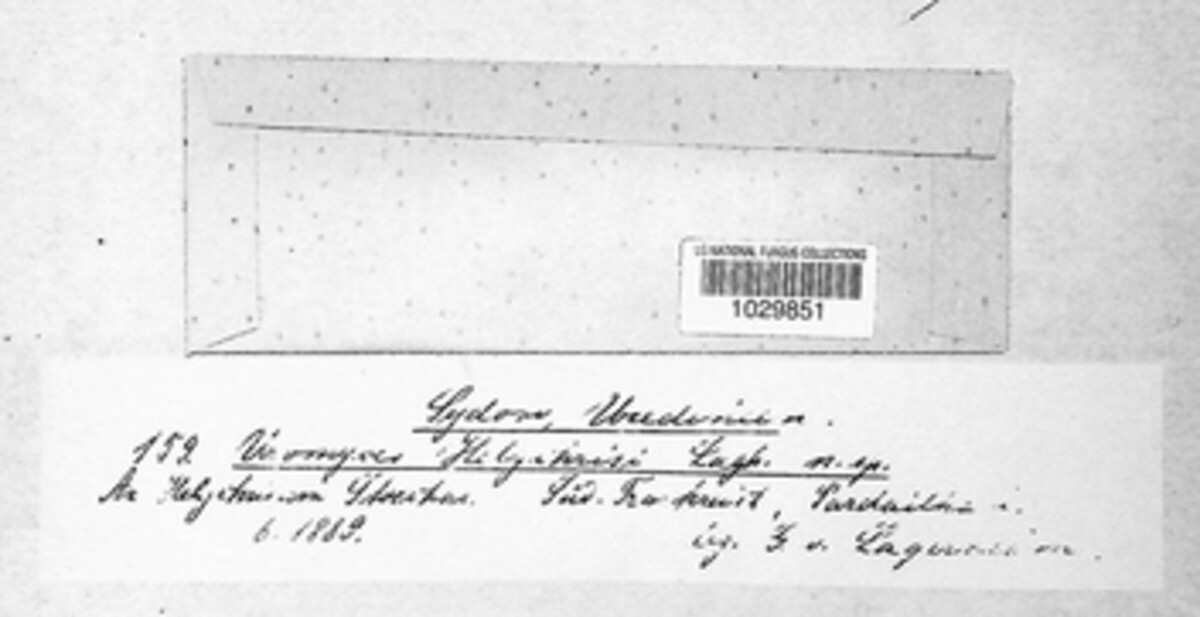 U.S. NATIONAL FUNGUS COLLECTIONS
1029851
Sydow, Uredineen.
152 Uromyces Helychrisi Lagh. n. sp.
Stoechas. Süd-Frankreich,
6. 1889.
v. Lagerheim.